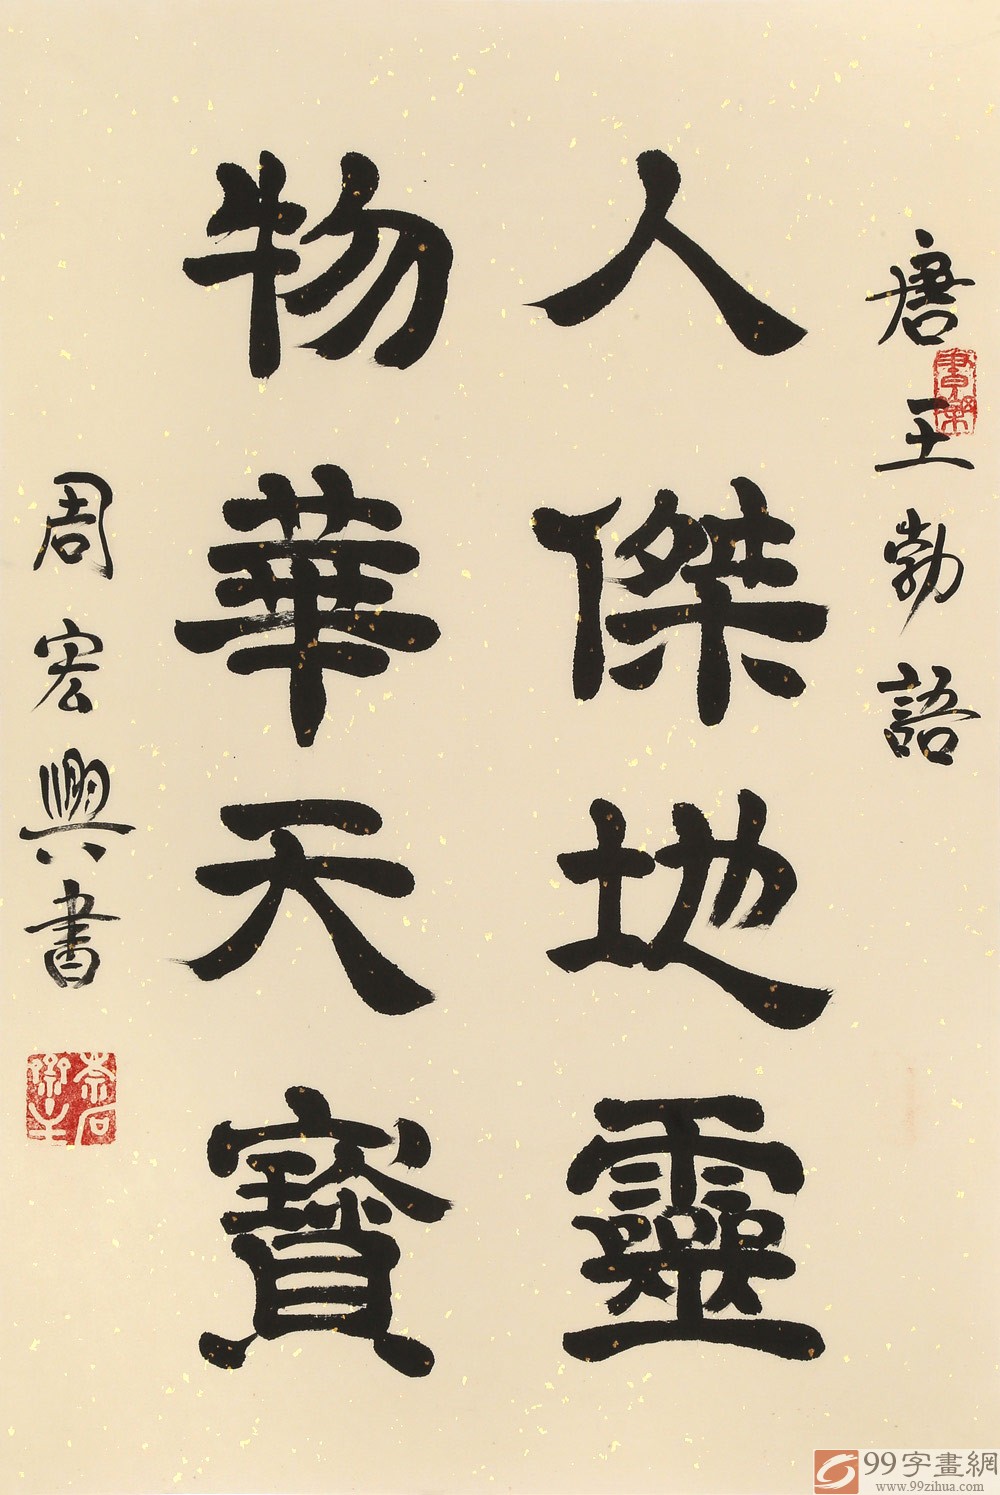 唐王勃語
人傑地靈
物華天寶
周宏興書
99字畫網
www.99zihua.com